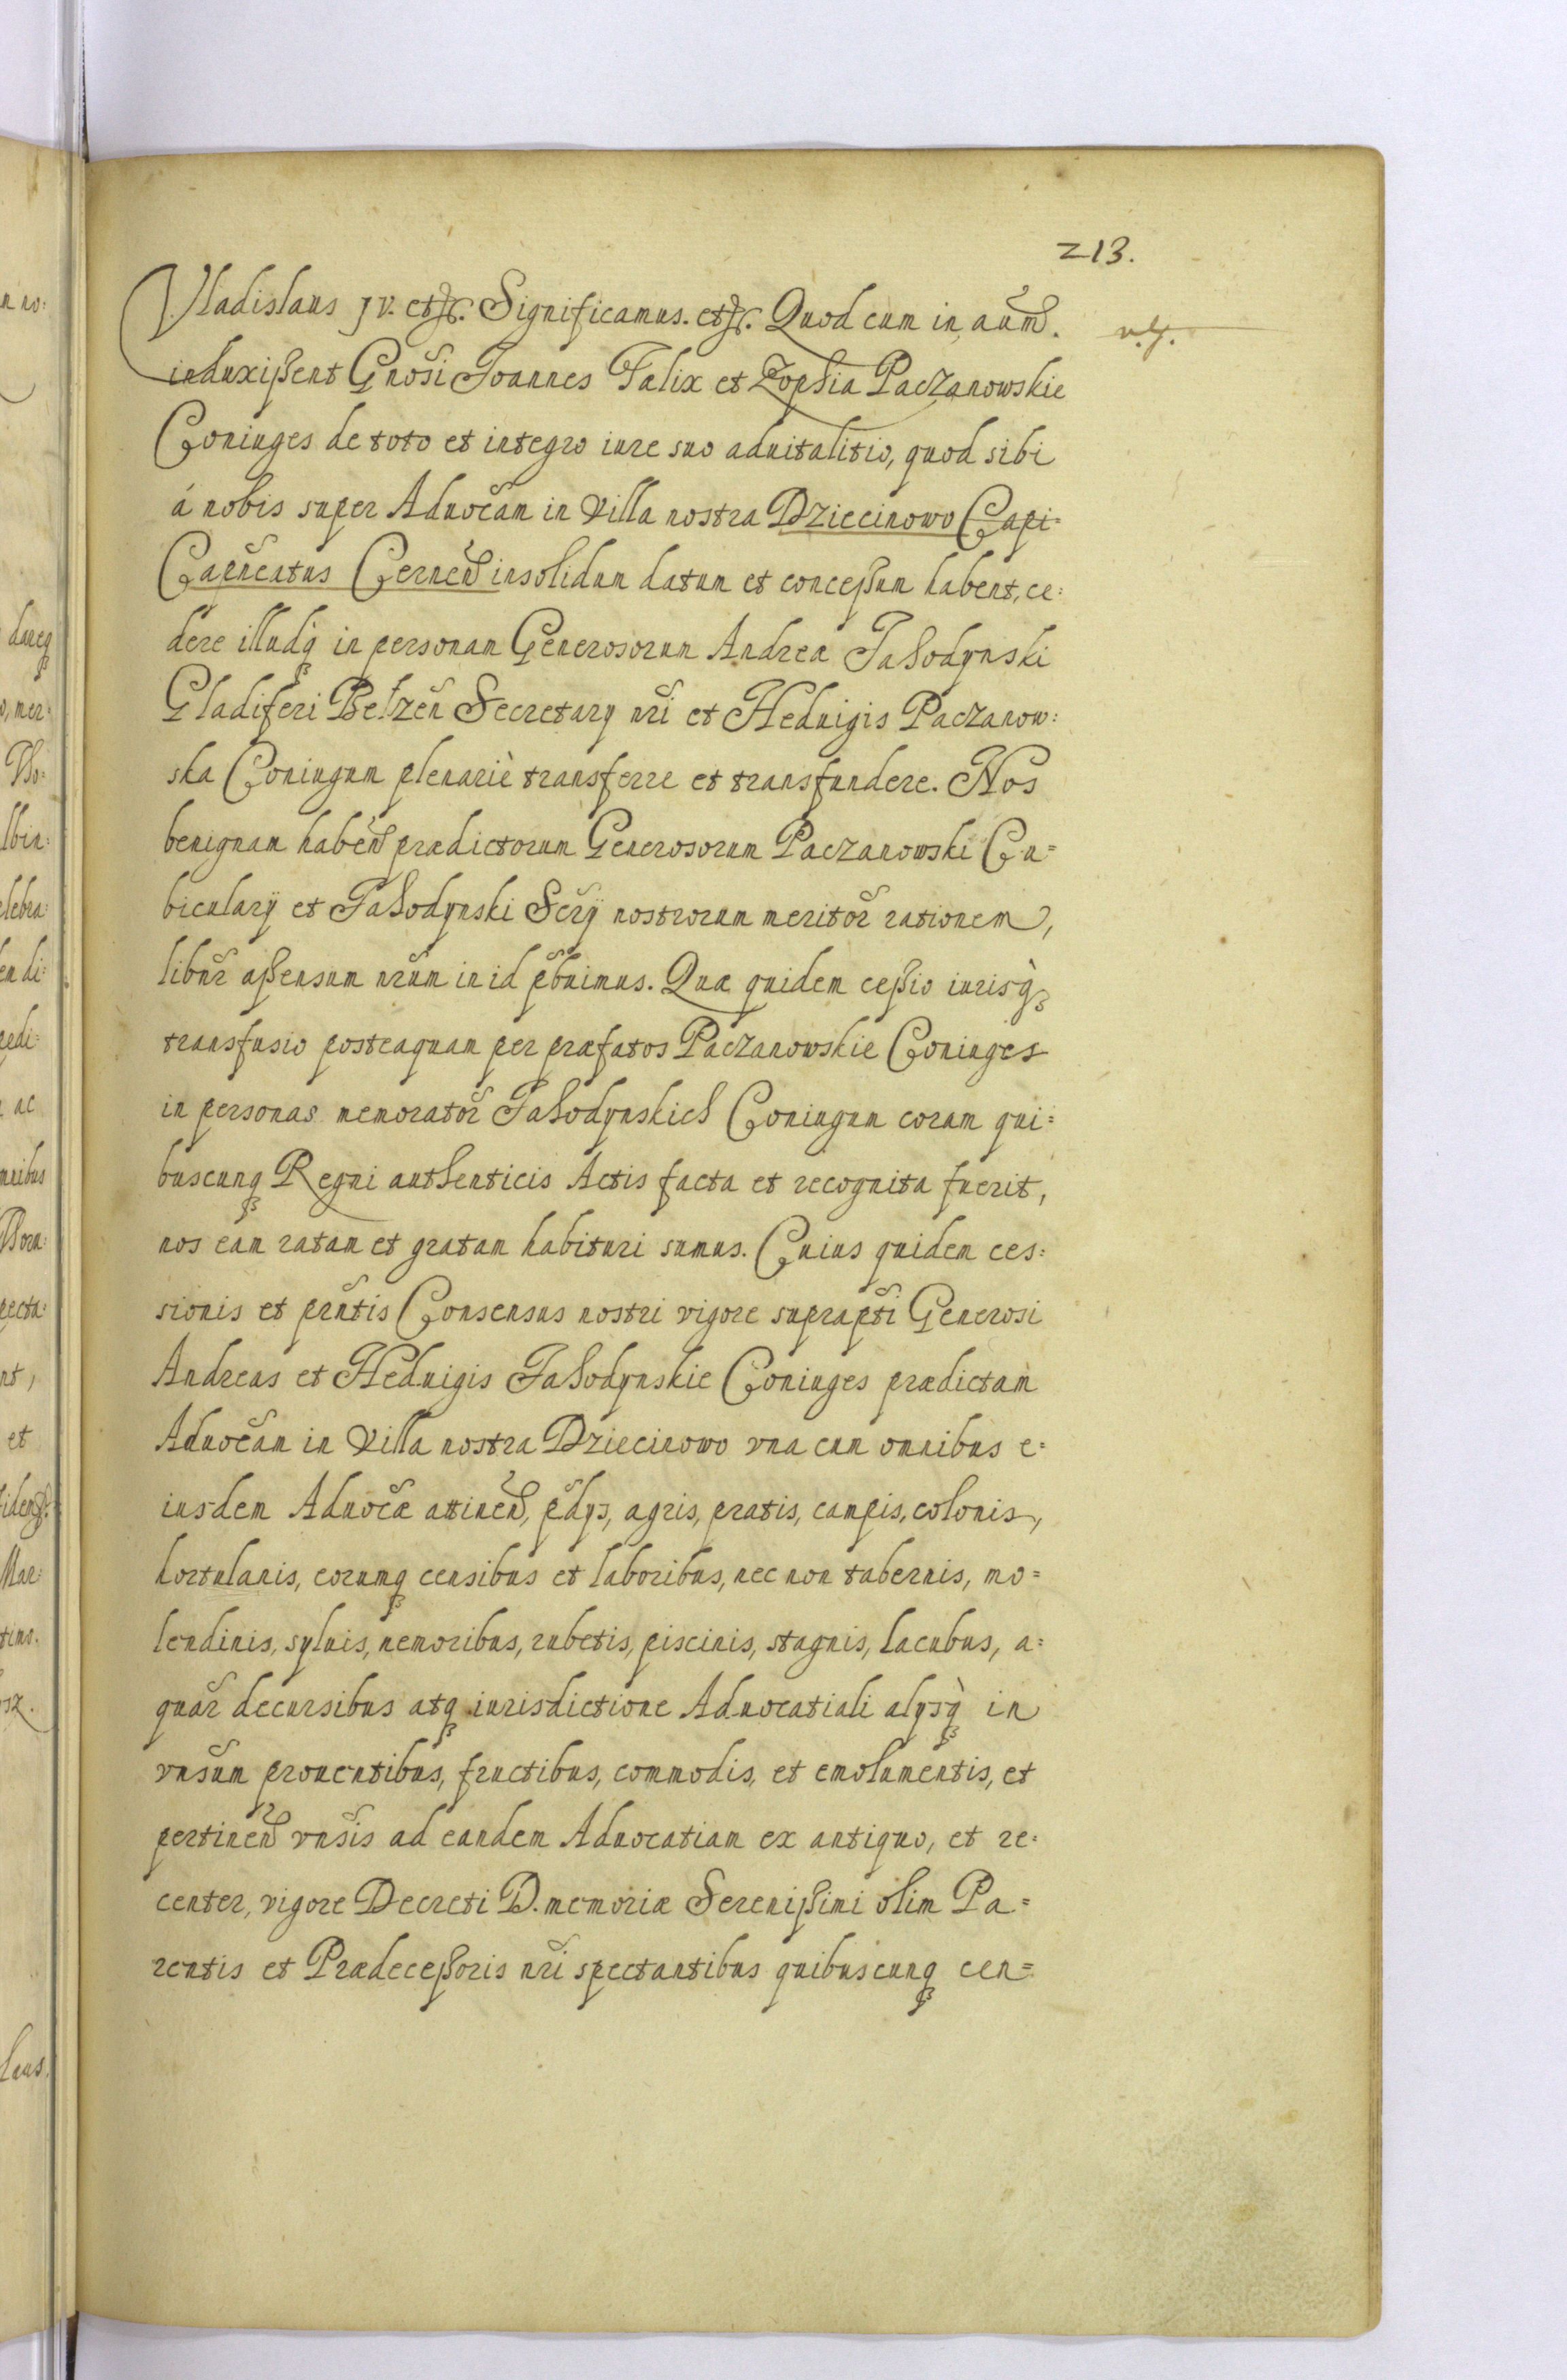 213.
Vladislaus IV. etc. Significamus. etc. Quod cum in aũm.
v. g.
induxißent Gnõsi Joannes Falix et Zophia Paczanowskie
Coniuges de toto et integro iure suo aduitalitio, quod sibi
á nobis super Aduocãm in Villa nostra Dziecinowo Capi=
Capñeatus Cerneñ insolidum datum et conceßum habent, ce:
dere illudq̀ in personam Generosorum Andreæ Jahodynski
Gladiferi Belzeñ Secretary nr̃i et Heduigis Paczanow:
ska Coniugum plenariè transferre et transfundere. Nos
benignam habeñ prædictorum Generosorum Paczanowski Cu=
bicularÿ et Jahodynski Secrÿ nostrorum meritor̃ rationem,
libñr aßensum nr̃um in id p̃buimus. Quæ quidem ceßio iurisq̀
transfusio posteaquam per præfatos Paczanowskie Coniuges
in personas memorator̃ Jahodynskich Coniugum coram qui=
buscunq Regni authenticis Actis facta et recognita fuerit,
nos eam ratam et gratam habituri sumus. Cuius quidem ces:
sionis et prñtis Consensus nostri vigore suprap̃ti Generosi
Andreas et Heduigis Jahodynskie Coniuges prædictam
Aduocãm in Villa nostra Dziecinowo vna cum omnibus e:
iusdem Aduocãe attineñ, p̃dys, agris, pratis, campis, colonis,
hortulanis, eorumq censibus et laboribus, nec non tabernis, mo=
lendinis, syluis, nemoribus, rubetis, piscinis, stagnis, lacubus, a=
quar̃ decursibus atq iurisdictione Aduocatiali alysq̀ in
vnsũm prouentibus, fructibus, commodis, et emolumentis, et
pertineñ vnsĩs ad eandem Aduocatiam ex antiquo, et re:
center, vigore Decreti D. memoriæ Sereníßimi olim Pa=
rentis et Prædeceßoris nr̃i spectantibus quibuscunq cen=